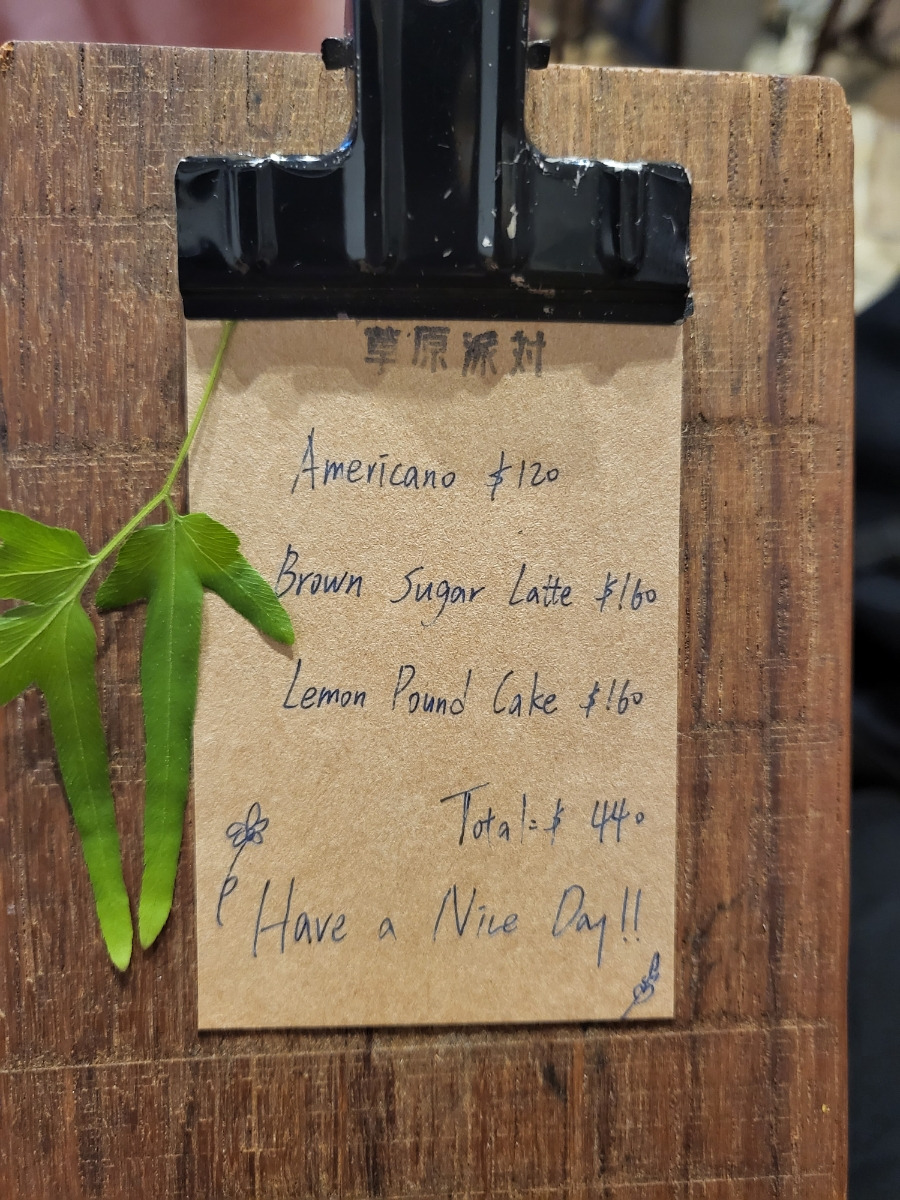 草原派対
Americano $120
Brown Sugar Latte $160
Lemon Pound Cake $160
Total=$ 440
Have a Nice Day!!